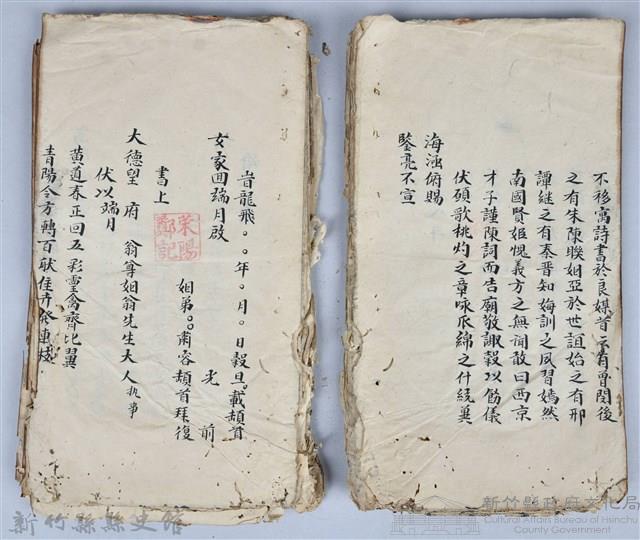 不移寓詩書於良媒昔予有曾閔後
之有朱陳睽姻亞於世誼始之有邢
譚継之有秦晋知姆訓之夙習嫣然
南國賢姬愧義方之無聞敢曰西京
才子謹陳詞而告廟敬諏穀以飭儀
伏碩歌桃灼之章咏瓜綿之什統兾
海涵俯賜
鑒亮不宣
旹龍飛。。年。月。日穀旦。載頓首
女家囬端月啟
光前
姻弟。。肅容頓首拜復
書上
滎陽鄭記
大德望 府 翁尊姻翁先生大人執事
伏以端月
黄道春正回五彩雲禽齊比翼
青陽令方轉百猷佳卉發連枝
新竹縣縣史館
新竹縣政府文化局
Cultural Affairs Bureau of Hsinchu
County Government